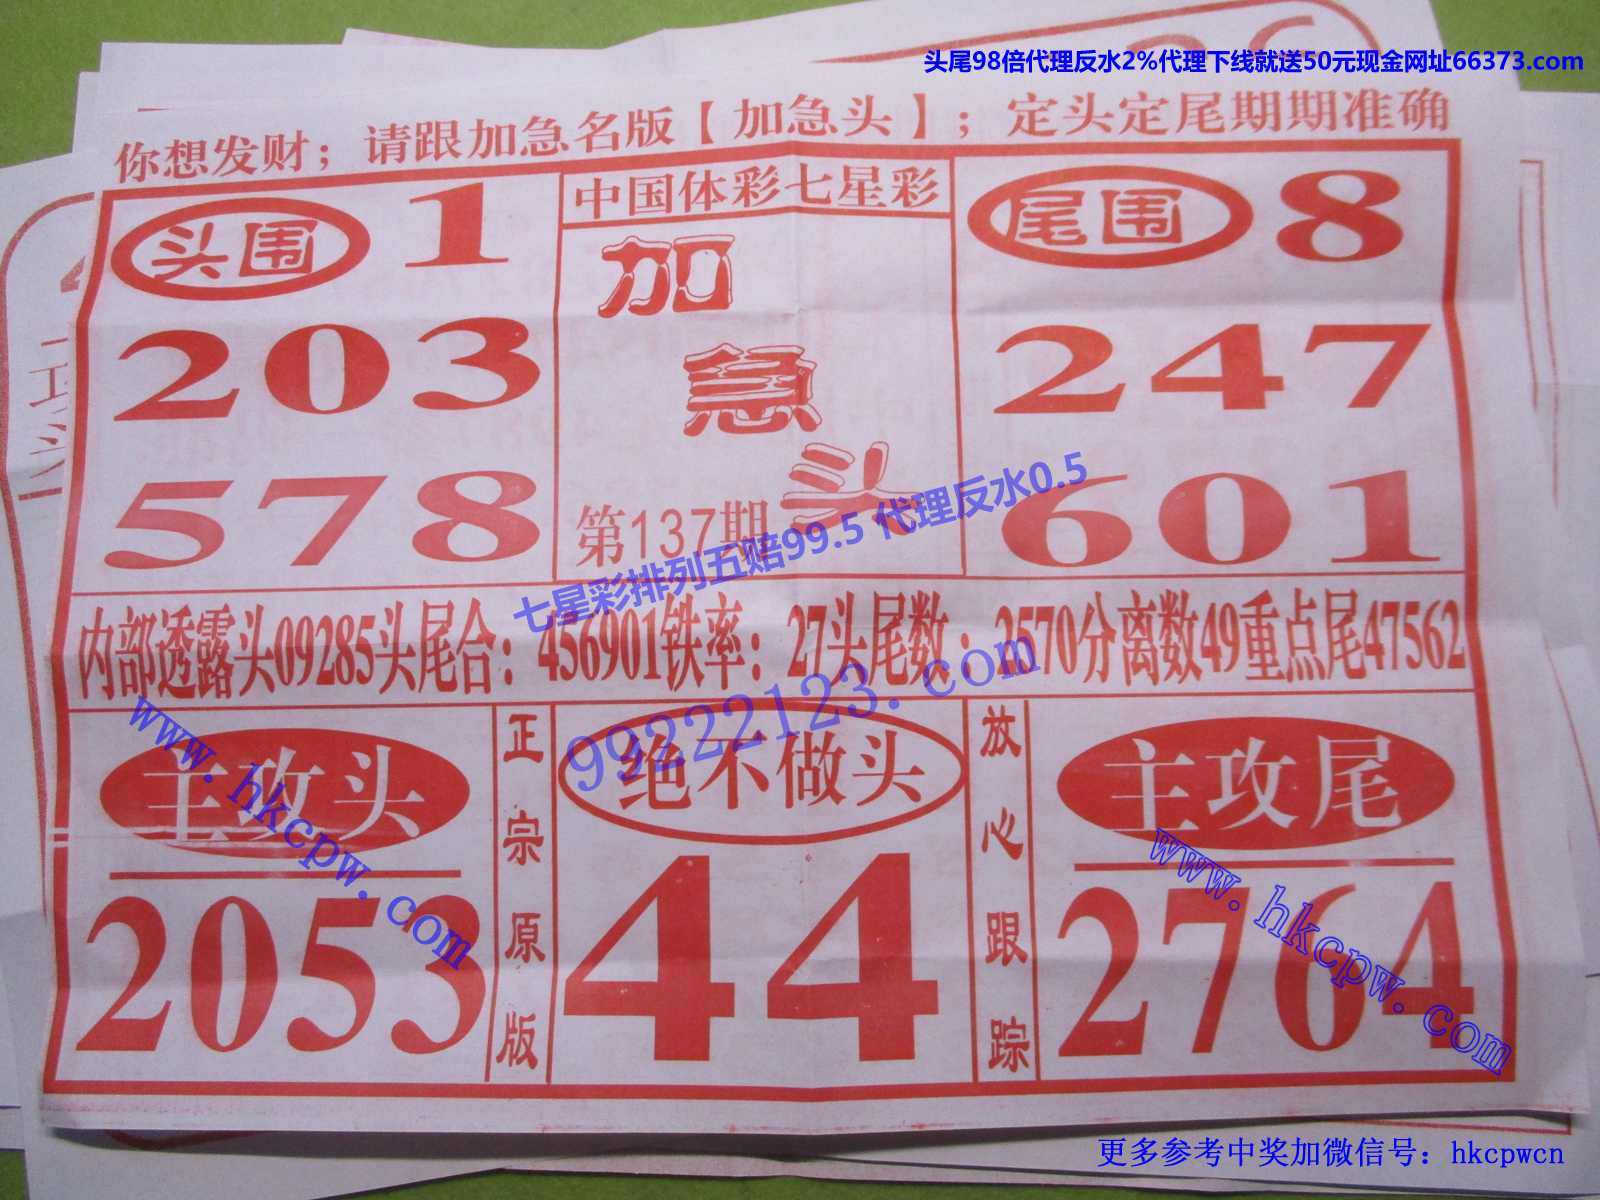 头尾98倍代理反水2%代理下线就送50元现金网址66373.com
你想发财；请跟加急名版【加急头】；定头定尾期期准确
头围 1
203
578
中国体彩七星彩
加急头
第137期
尾围 8
247
601
七星彩排列五赔99.5 代理反水0.5
内部透露头09285头尾合：456901铁率：27头尾数：2570分离数49重点尾47562
99222123.com
主攻头
2053
www.hkcpw.com
正宗原版
绝不做头
44
放心跟踪
主攻尾
2764
www.hkcpw.com
更多参考中奖加微信号：hkcpwcn